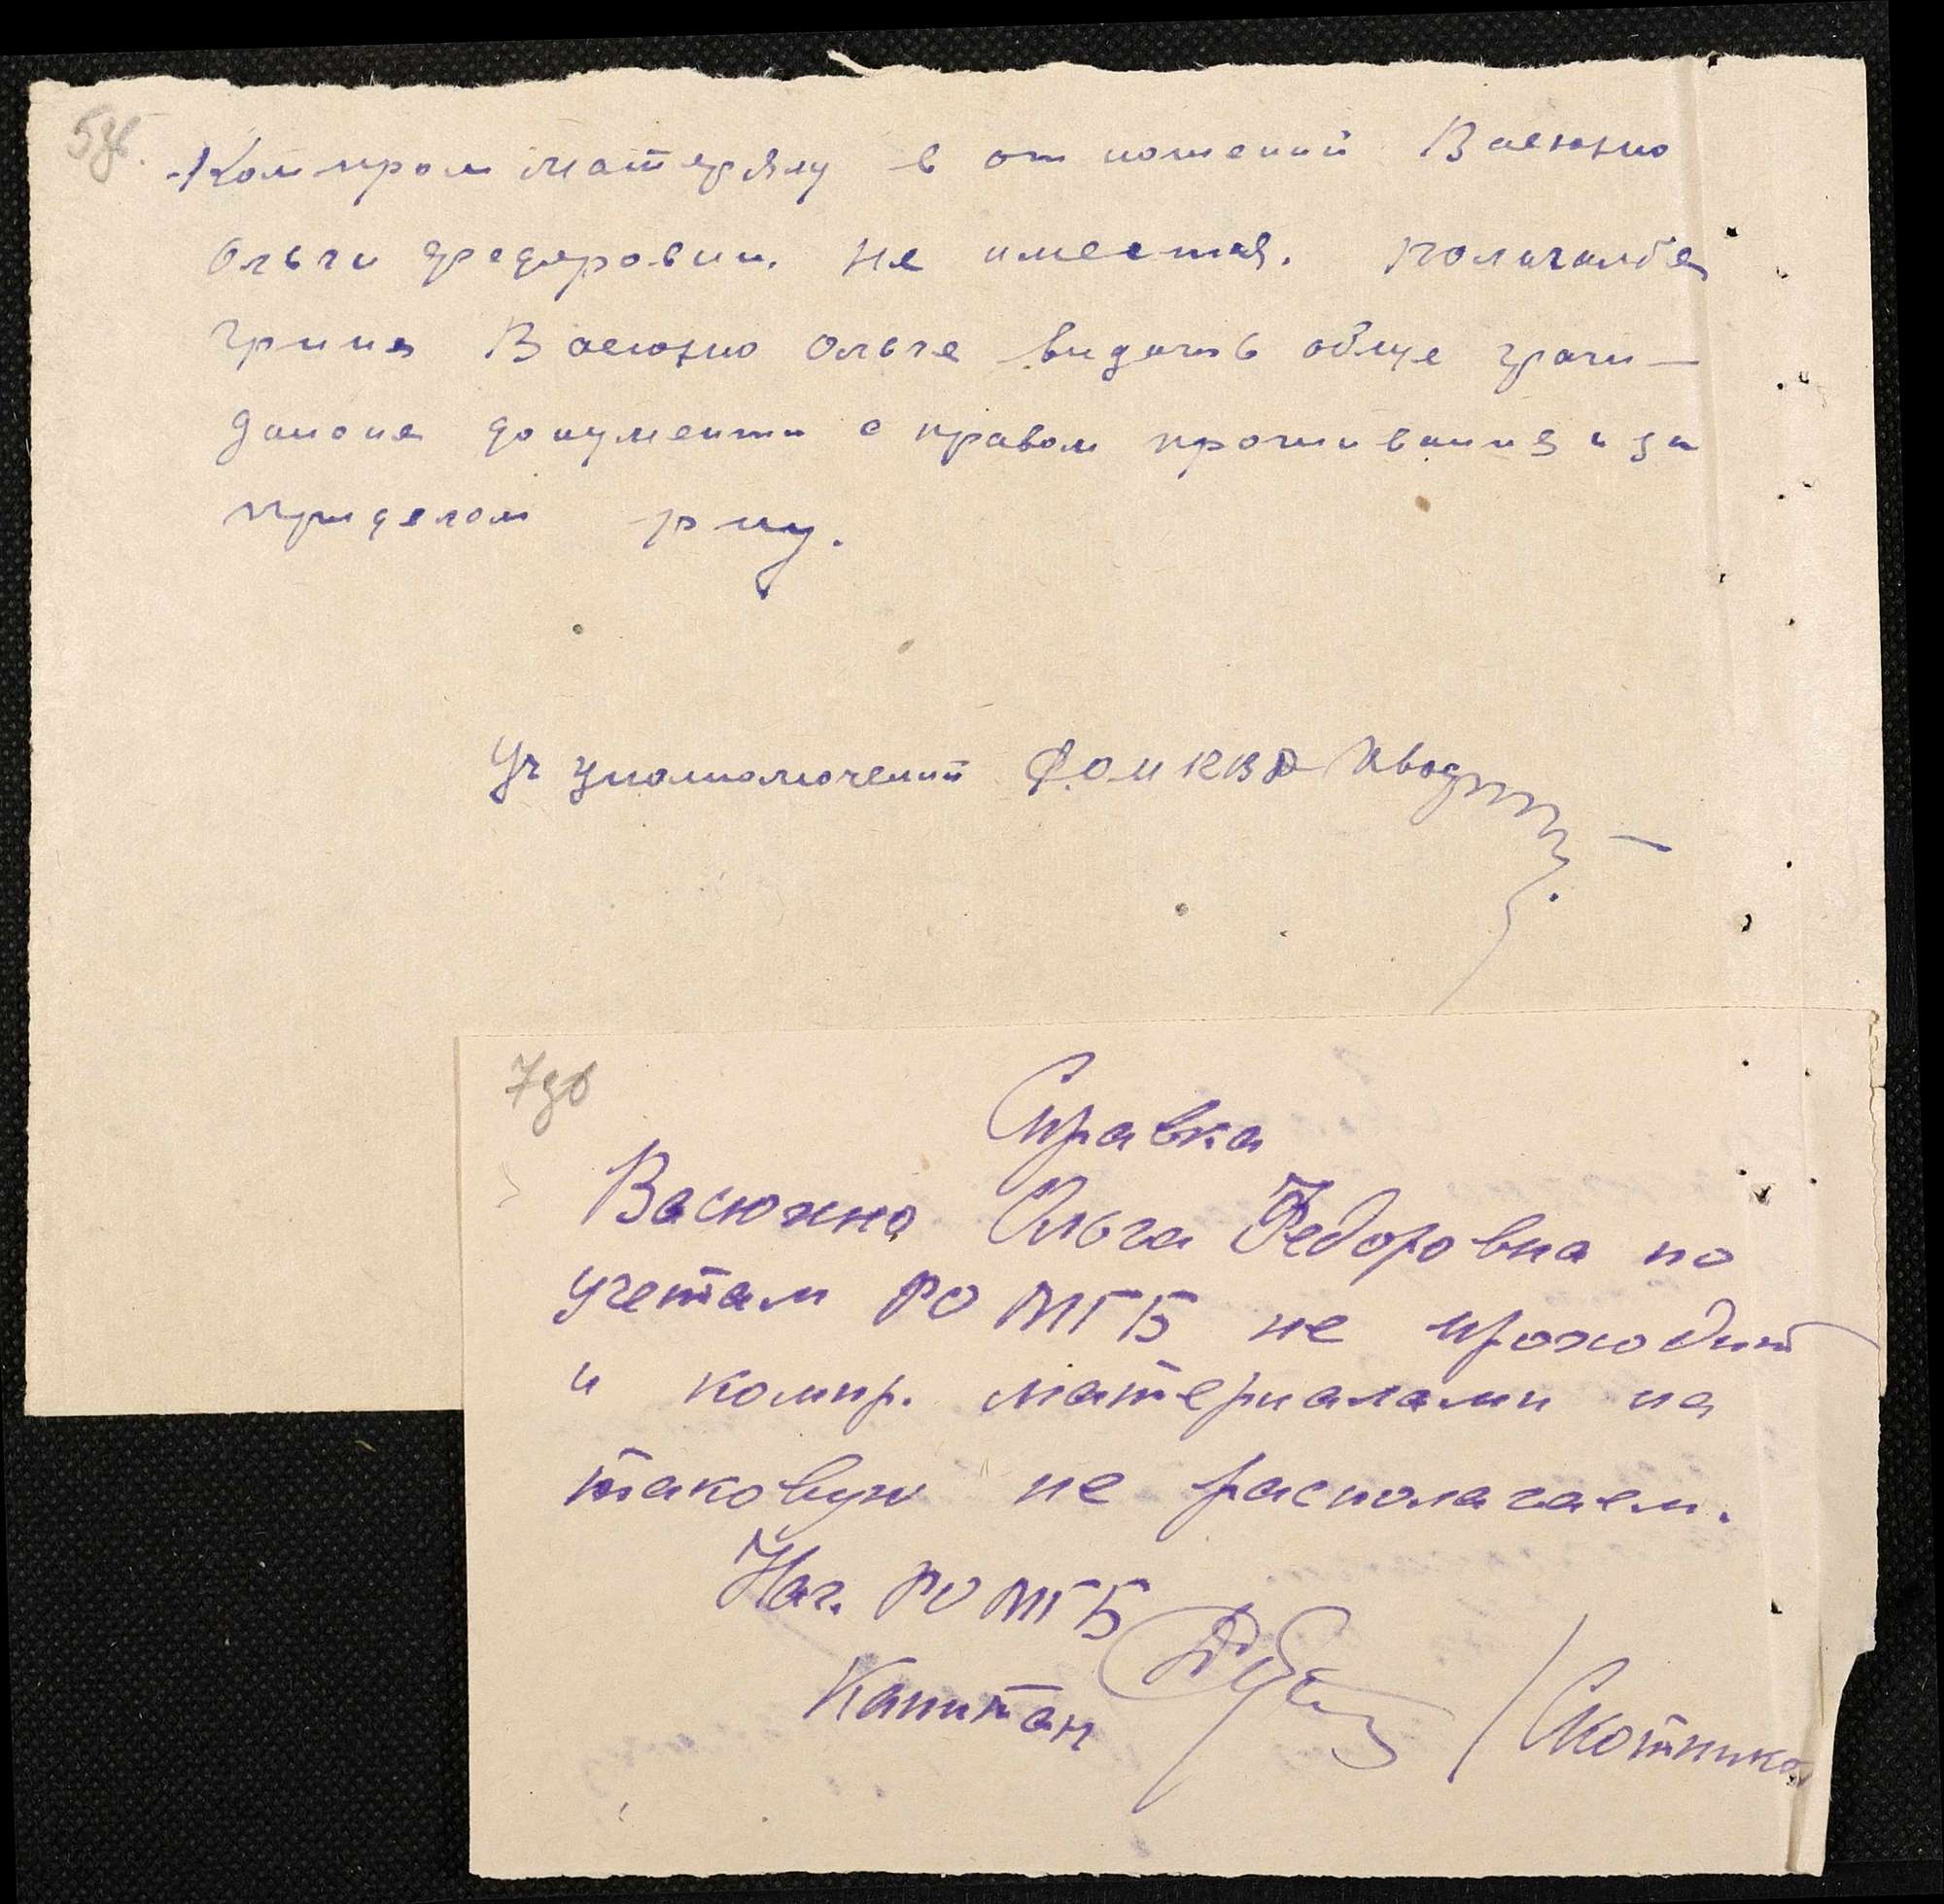 5зб.
Компром матерялу в отношений Васюхно
Ольги Федоровни. Не имеетця.
грина Васюхно Ольге видать обще граж-
документи с правом проживания и за
приделом рпу.
Уч уполномоченний
7зб
Справка
Васюхно Ольга Федоровна по
учетам РО МГБ не проходит
и компр. материалами на
таковую не располагаем.
Нач. РО МГБ
Капитан /Скотников